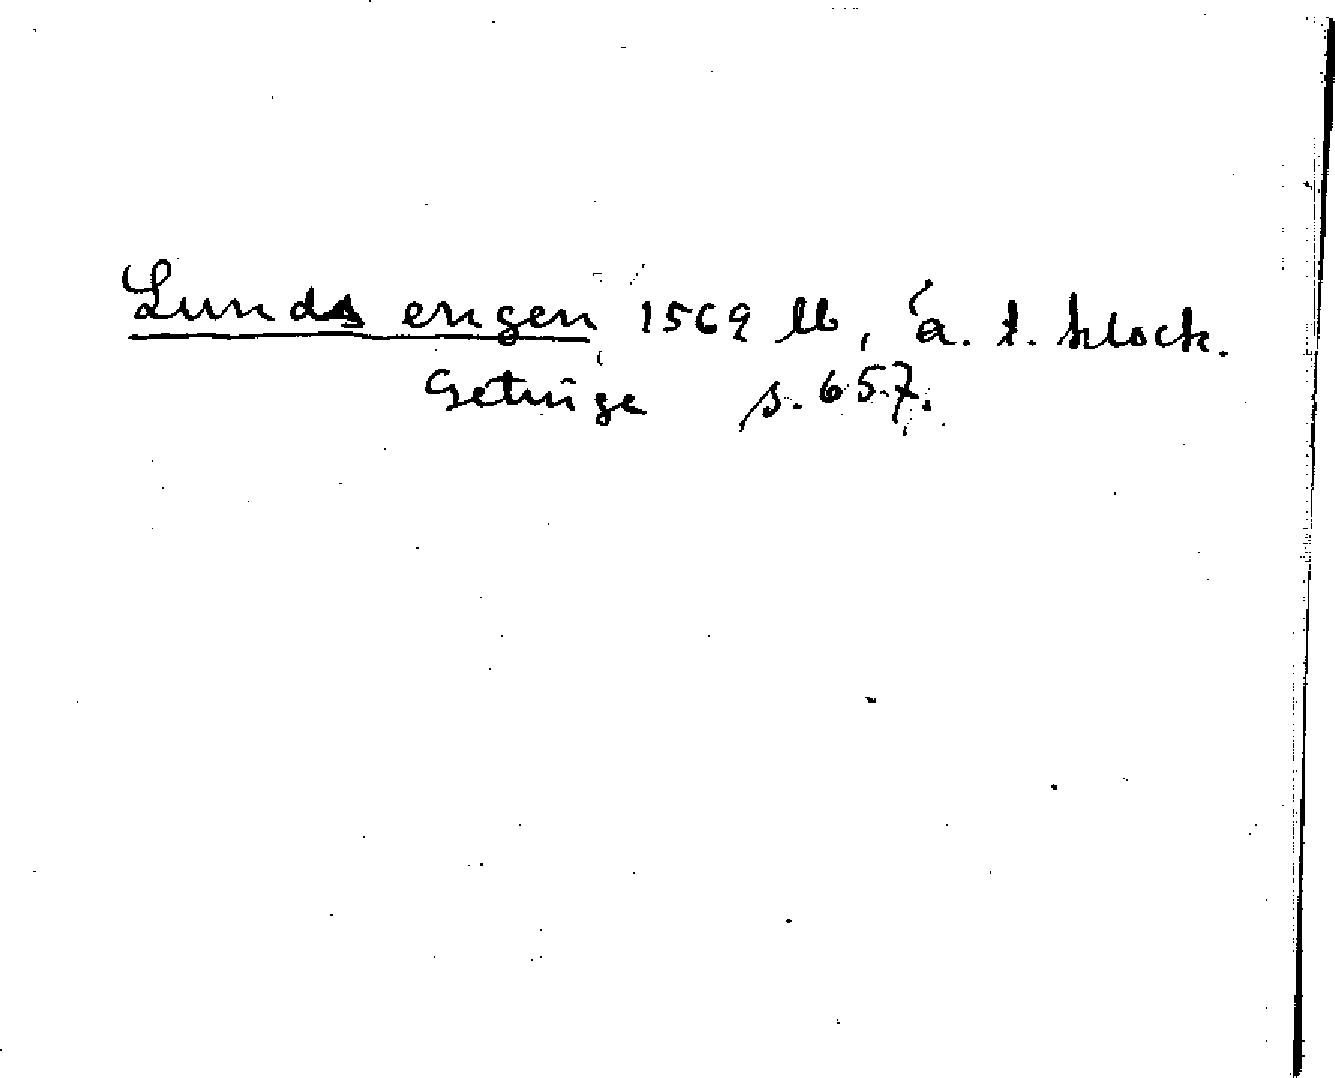 Lunds engen 1569 lb, á. t. klock.
Getinge s. 657.